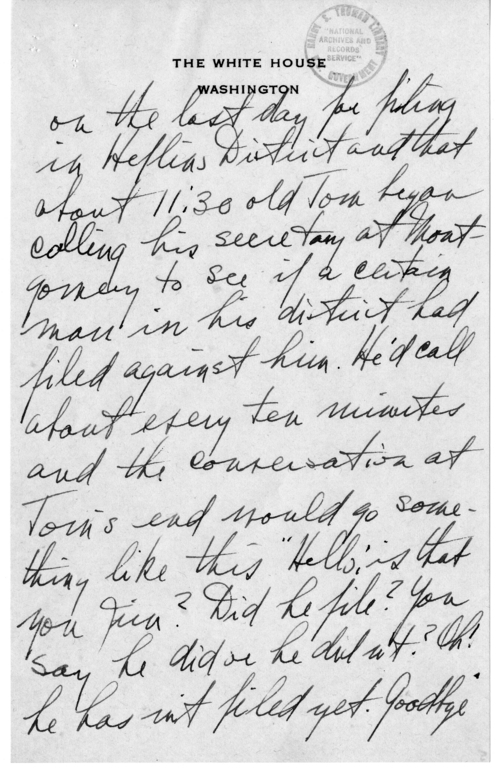 HARRY S. TRUMAN LIBRARY
"NATIONAL
ARCHIVES AND
RECORDS
SERVICE"
U.S. GOVERNMENT
THE WHITE HOUSE
WASHINGTON
on the last day for filing
in Heflins District and that
about 11:30 old Tom began
calling his secretary at Mont-
gomery to see if a certain
man in his district had
filed against him. He'd call
about every ten minutes
and the conversation at
Tom's end would go some-
thing like this "Hello, is that
you Jim? Did he file? You
say he did or he did n't? Oh!
he has n't filed yet. Goodbye"